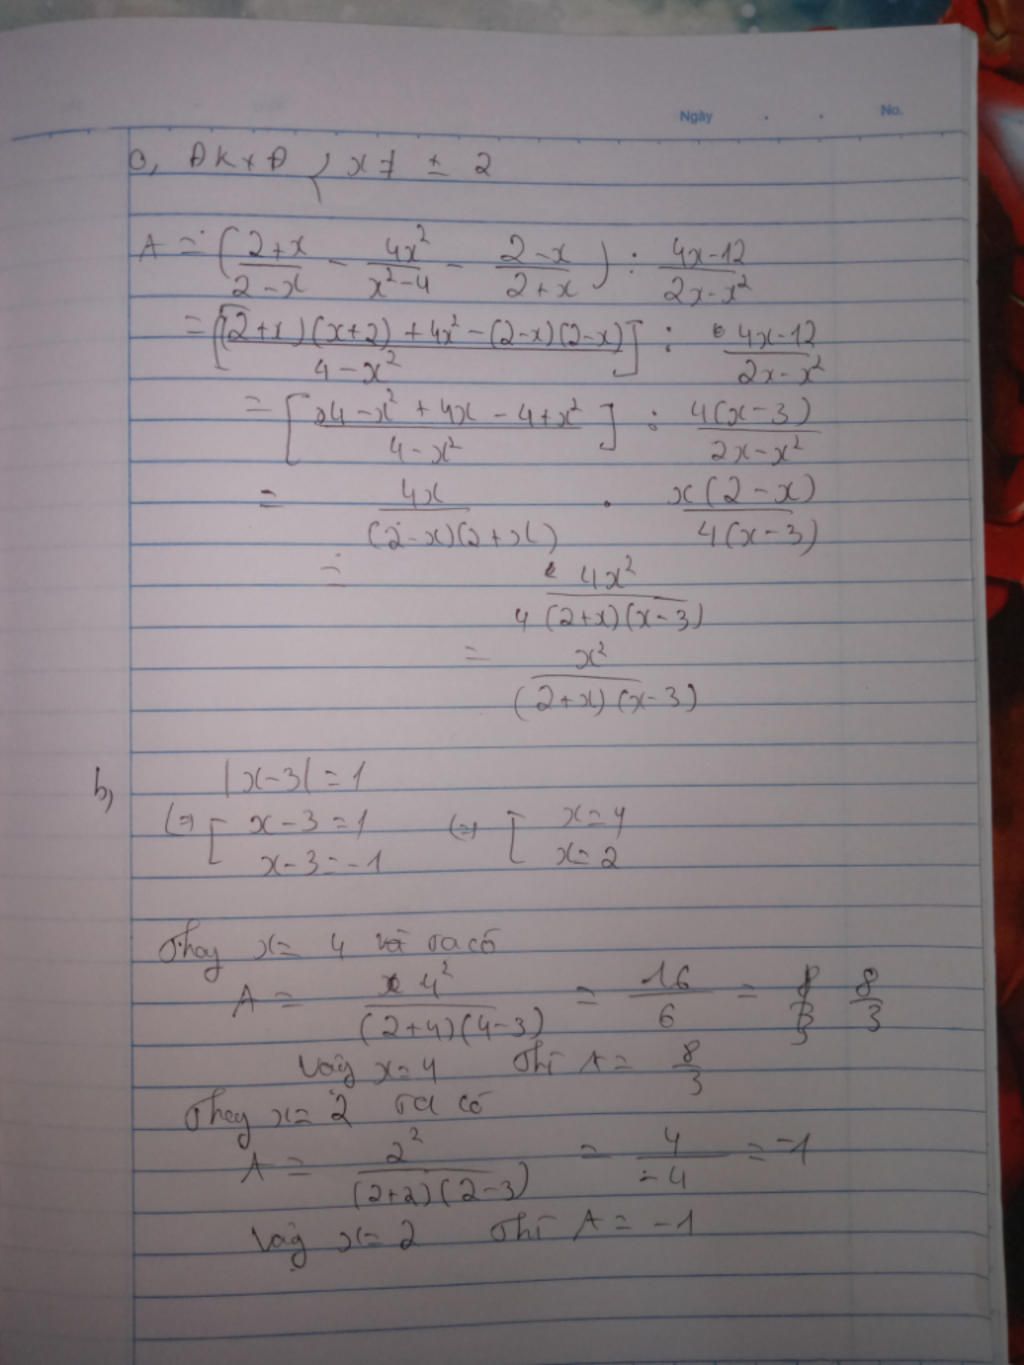 Ngày . . No.
a, ĐKXĐ { x ≠ ± 2
A = (\frac{2+x}{2-x} - \frac{4x²}{x²-4} - \frac{2-x}{2+x}) : \frac{4x-12}{2x-x²}
= [\frac{(2+x)(x+2) + 4x² - (2-x)(2-x)}{4-x²}] : \frac{4x-12}{2x-x²}
= [\frac{4-x² + 4x - 4+x²}{4-x²}] : \frac{4(x-3)}{2x-x²}
= \frac{4x}{(2-x)(2+x)} . \frac{x(2-x)}{4(x-3)}
= \frac{4x²}{4(2+x)(x-3)}
= \frac{x²}{(2+x)(x-3)}
b, |x-3| = 1
⇔ [ x-3=1 ⇔ [ x=4
x-3=-1 x=2
Thay x= 4 ta có
A = \frac{4²}{(2+4)(4-3)} = \frac{16}{6} = \frac{8}{3}
Vậy x=4 thì A = \frac{8}{3}
Thay x= 2 ta có
A = \frac{2²}{(2+2)(2-3)} = \frac{4}{-4} = -1
Vậy x=2 thì A = -1